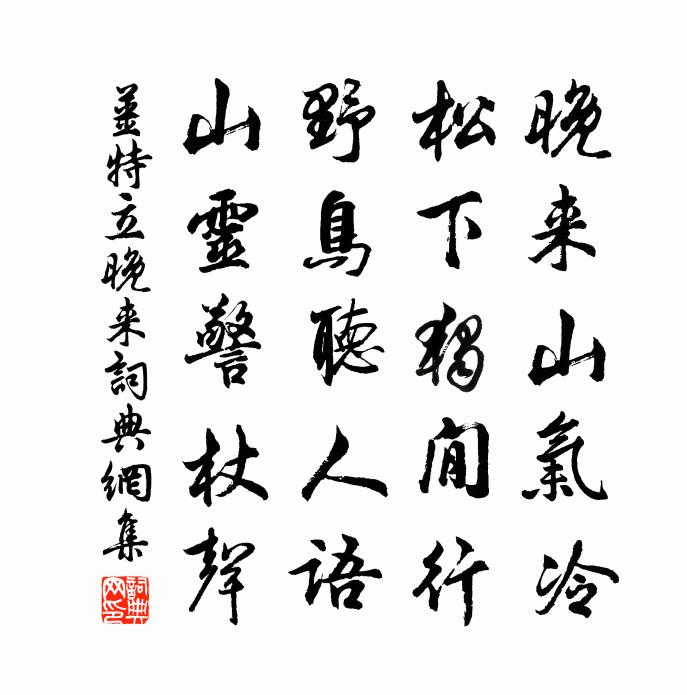 晚来山氣冷
松下獨閒行
野鳥聽人語
山靈警杖聲
姜特立晚来詞典網集
詞典网印